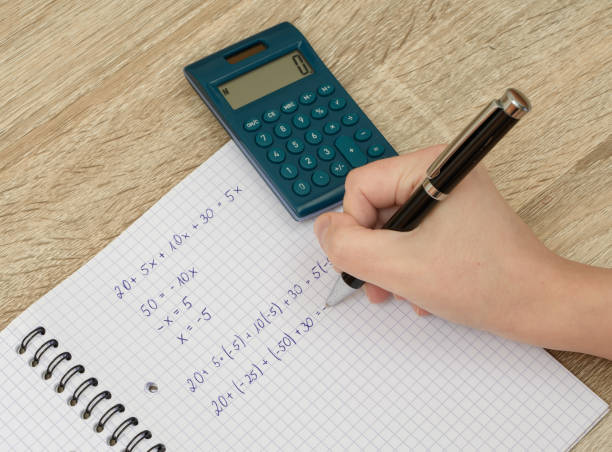 0
M
ON/C CE MRC M- M+
7 8 9 % √
4 5 6 × ÷
1 2 3 + -
0 . +/-
20 + 5x + 10x + 30 = 5x
50 = -10x
-x = 5
x = -5
20 + 5·(-5) + 10(-5) + 30 = 5(-5
20 + (-25) + (-50) + 30 = -